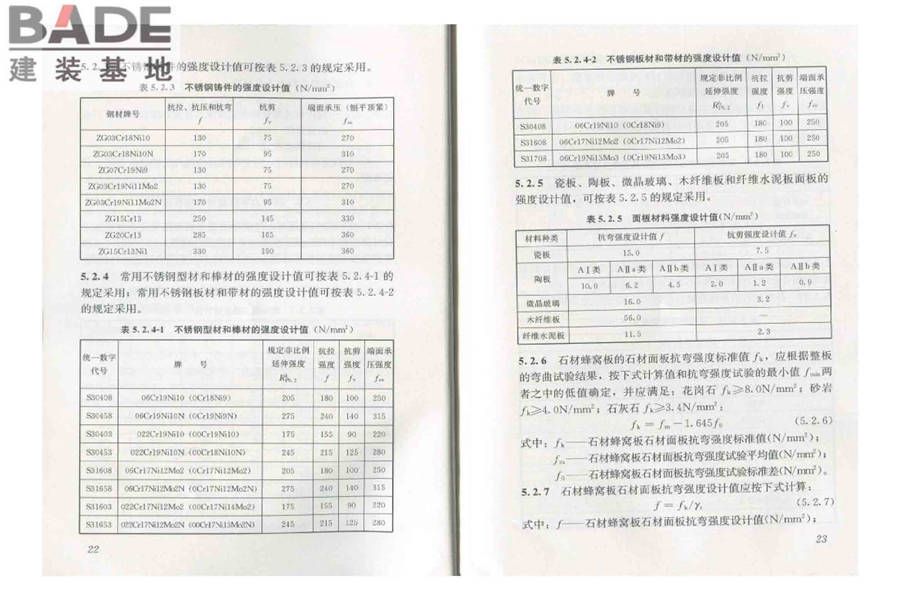 BADE
建装基地
5.2.3 不锈钢铸件的强度设计值可按表 5.2.3 的规定采用。
表 5.2.3 不锈钢铸件的强度设计值(N/mm²)
钢材牌号 抗拉、抗压和抗弯 f 抗剪 fᵥ 端面承压(刨平顶紧)
ZG03Cr18Ni10 130 75 270
ZG03Cr18Ni10N 170 95 310
ZG07Cr19Ni9 130 75 270
ZG03Cr19Ni11Mo2 130 75 270
ZG03Cr19Ni11Mo2N 170 95 310
ZG15Cr13 250 145 330
ZG20Cr13 285 165 360
ZG15Cr13Ni1 330 190 360
5.2.4 常用不锈钢型材和棒材的强度设计值可按表 5.2.4-1 的
规定采用;常用不锈钢板材和带材的强度设计值可按表 5.2.4-2
的规定采用。
表 5.2.4-1 不锈钢型材和棒材的强度设计值(N/mm²)
统一数字代号 牌 号 规定非比例延伸强度 抗拉强度 f 抗剪强度 fᵥ 端面承压强度
S30408 06Cr19Ni10 (0Cr18Ni9) 205 180 100 250
S30458 06Cr19Ni10N (0Cr19Ni9N) 275 240 140 315
S30403 022Cr19Ni10 (00Cr19Ni10) 175 155 90 220
S30453 022Cr19Ni10N (00Cr18Ni10N) 245 215 125 280
S31608 06Cr17Ni12Mo2 (0Cr17Ni12Mo2) 205 180 100 250
S31658 06Cr17Ni12Mo2N (0Cr17Ni12Mo2N) 275 240 140 315
S31603 022Cr17Ni12Mo2 (00Cr17Ni14Mo2) 175 155 90 220
S31653 022Cr17Ni12Mo2N (00Cr17Ni13Mo2N) 245 215 125 280
22
表 5.2.4-2 不锈钢板材和带材的强度设计值(N/mm²)
统一数字代号 牌 号 规定非比例延伸强度 抗拉强度 抗剪强度 fᵥ 端面承压强度
S30408 06Cr19Ni10 (0Cr18Ni9) 205 180 100 250
S31608 06Cr17Ni12Mo2 (0Cr17Ni12Mo2) 205 180 100 250
S31708 06Cr19Ni13Mo3 (0Cr19Ni13Mo3) 205 180 100 250
5.2.5 瓷板、陶板、微晶玻璃、木纤维板和纤维水泥板面板的
强度设计值,可按表 5.2.5 的规定采用。
表 5.2.5 面板材料强度设计值(N/mm²)
材料种类 抗弯强度设计值 f 抗剪强度设计值 fᵥ
瓷板 15.0 7.5
陶板 AⅠ类 AⅡa类 AⅡb类 AⅠ类 AⅡa类 AⅡb类
10.0 6.2 4.5 2.0 1.2 0.9
微晶玻璃 16.0 3.2
木纤维板 56.0 —
纤维水泥板 11.5 2.3
5.2.6 石材蜂窝板的石材面板抗弯强度标准值 fₖ,应根据整板
的弯曲试验结果,按下式计算值和抗弯强度试验的最小值 fmin两
者之中的低值确定,并应满足:花岗石 fₖ≥8.0N/mm²;砂岩
fₖ≥4.0N/mm²;石灰石 fₖ≥3.4N/mm²:
fₖ = fₘ − 1.645f₀ (5.2.6)
式中:fₖ——石材蜂窝板石材面板抗弯强度标准值(N/mm²);
fₘ——石材蜂窝板石材面板抗弯强度试验平均值(N/mm²);
f₀——石材蜂窝板石材面板抗弯强度试验标准差(N/mm²)。
5.2.7 石材蜂窝板石材面板抗弯强度设计值应按下式计算:
f = fₖ/γᵣ (5.2.7)
式中:f——石材蜂窝板石材面板抗弯强度设计值(N/mm²);
23